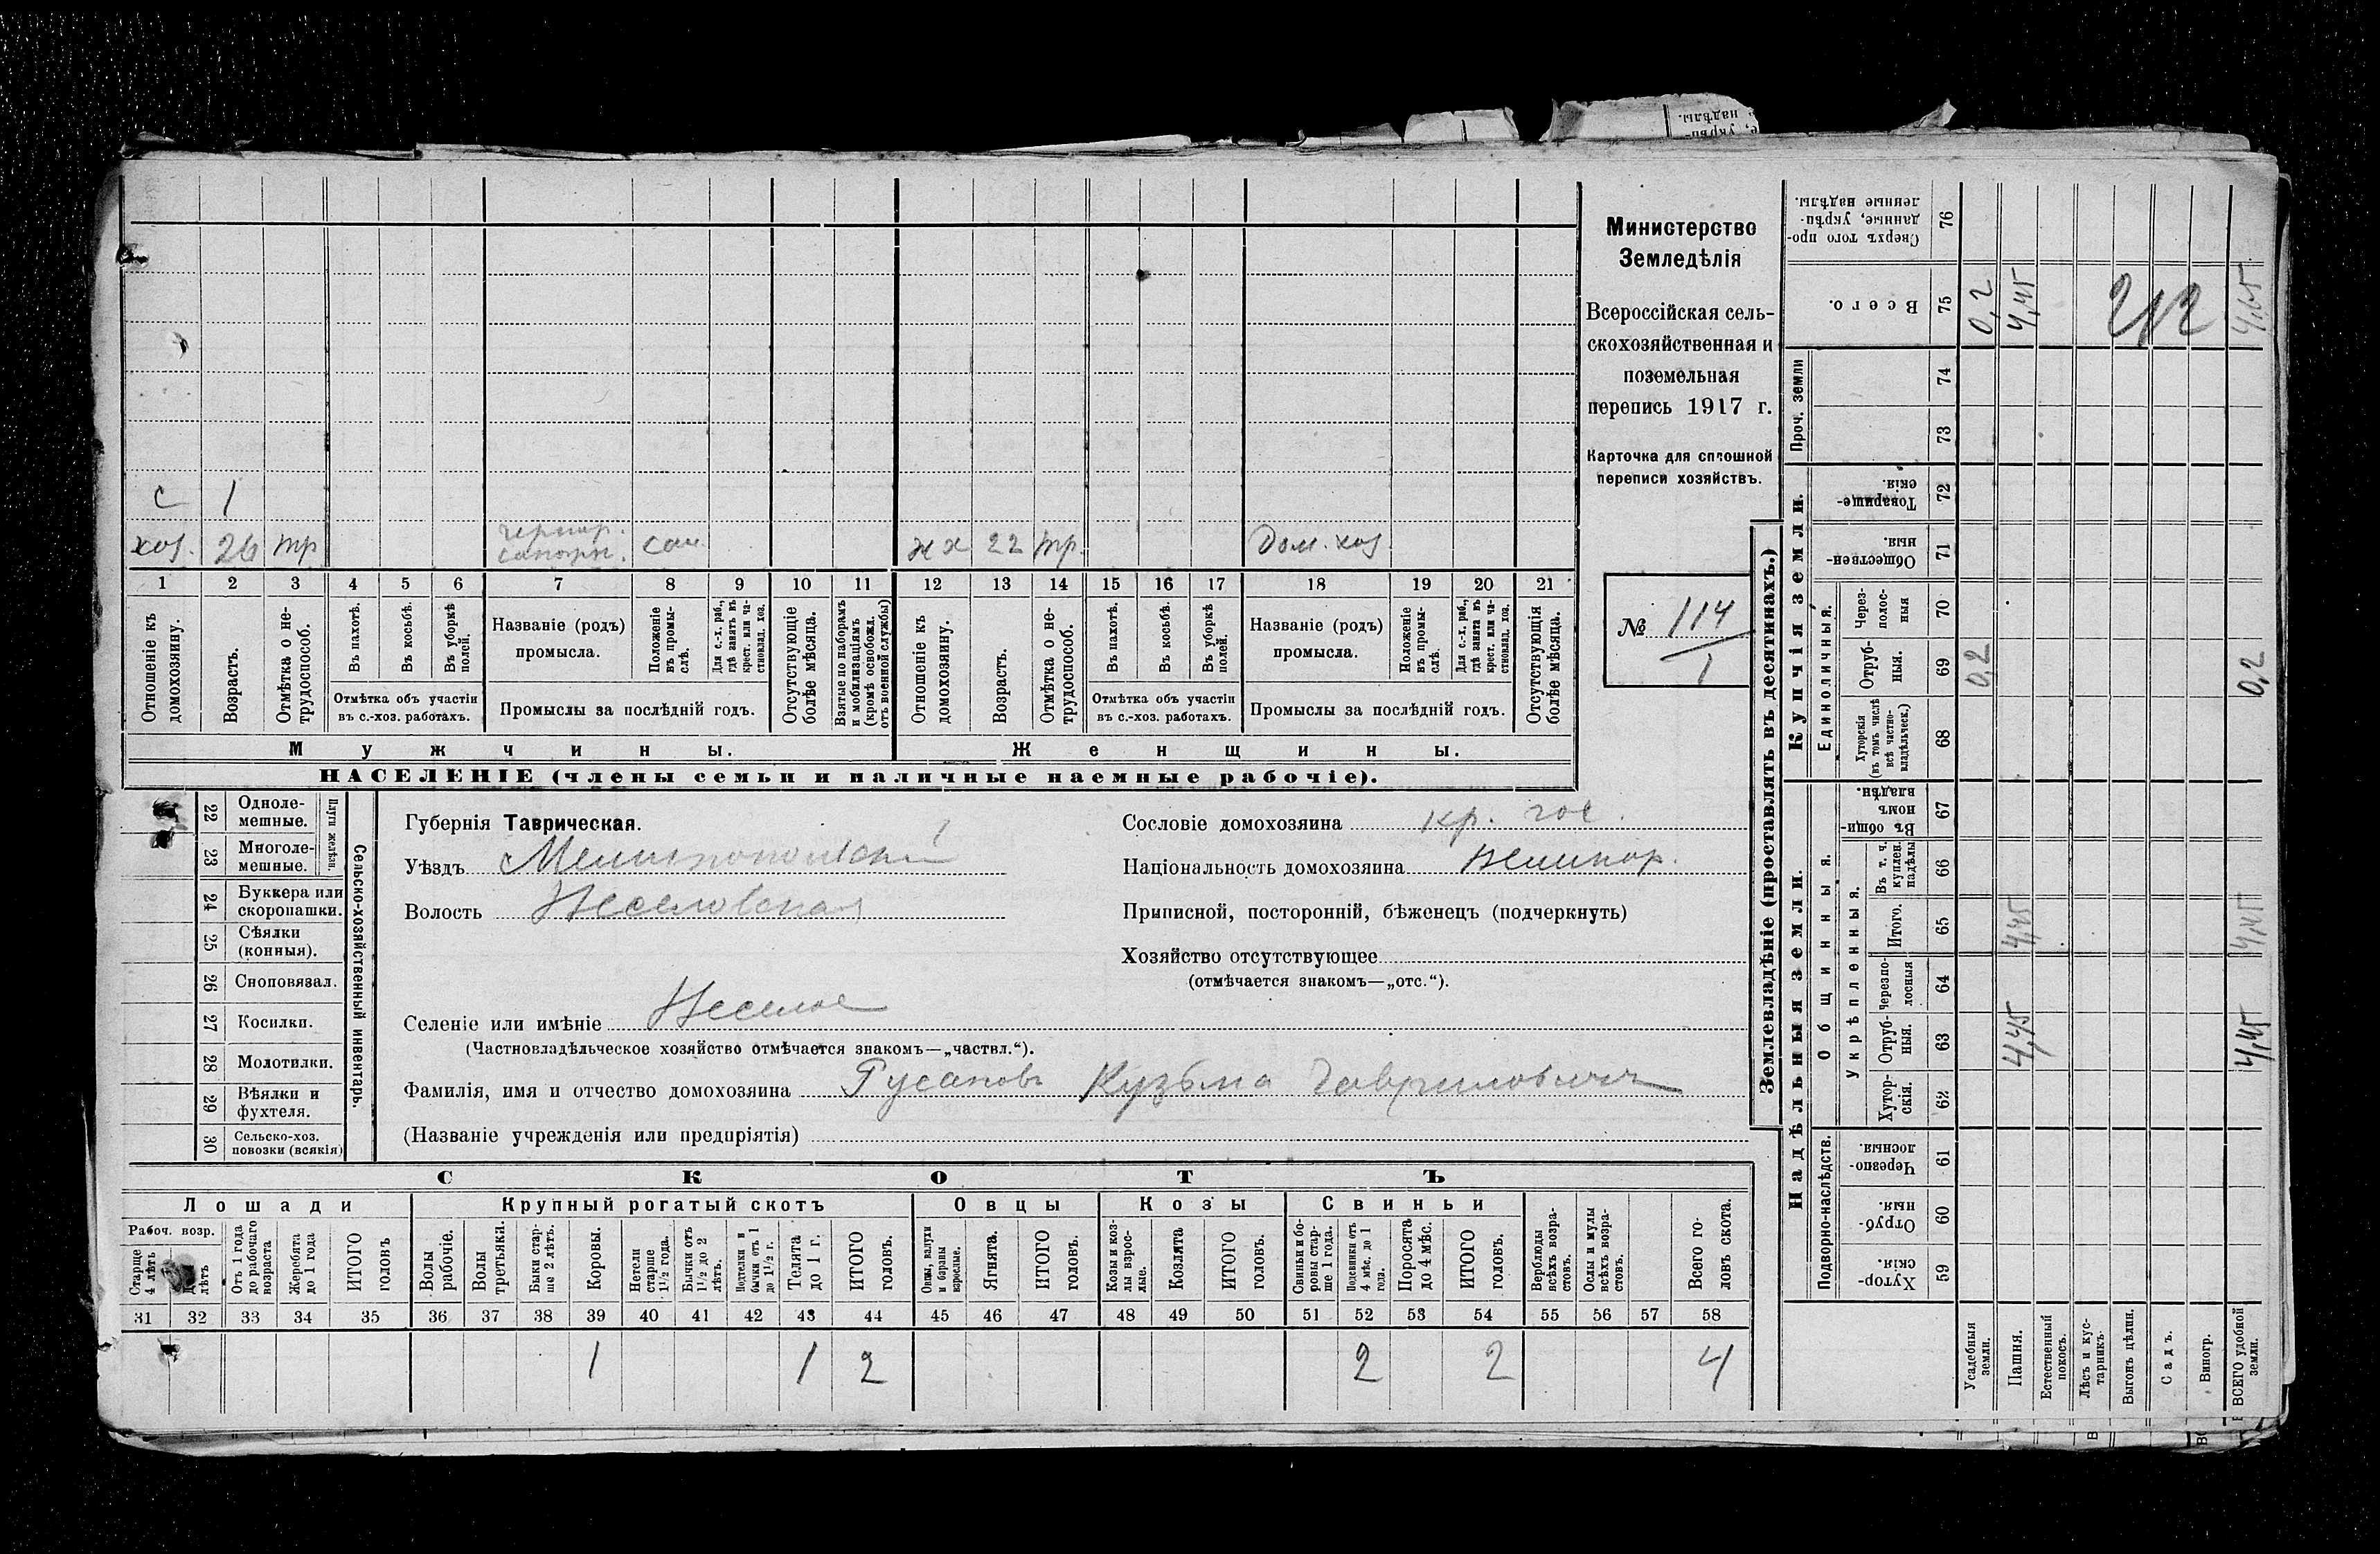 Министерство
Земледѣлія
Всероссійская сель-
скохозяйственная и
поземельная
перепись 1917 г.
Карточка для сплошной
переписи хозяйствъ.
№ 114
1
с 1
хоз. 26 тр сап. жх 22 тр. Дом. хоз
1 2 3 4 5 6 7 8 9 10 11 12 13 14 15 16 17 18 19 20 21
Отношеніе къ домохозяину.
Возрастъ.
Отмѣтка о не-трудоспособ.
Въ пахотѣ.
Въ косьбѣ.
Въ уборкѣ полей.
Отмѣтка объ участіи
въ с.-хоз. работахъ.
Названіе (родъ)
промысла.
Положеніе въ промы-слѣ.
Для с.-х. раб., гдѣ занятъ въ крест. или ча-стновлад. хоз.
Промыслы за послѣдній годъ.
Отсутствующіе болѣе мѣсяца.
Взятые по наборамъ и мобилизаціямъ (кромѣ освобожд. отъ военной службы)
Отношеніе къ домохозяину.
Возрастъ.
Отмѣтка о не-трудоспособ.
Въ пахотѣ.
Въ косьбѣ.
Въ уборкѣ полей.
Отмѣтка объ участіи
въ с.-хоз. работахъ.
Названіе (родъ)
промысла.
Положеніе въ промы-слѣ.
Для с.-х. раб., гдѣ занята въ крест. или ча-стновлад. хоз.
Промыслы за послѣдній годъ.
Отсутствующія болѣе мѣсяца.
Мужчины.
Женщины.
НАСЕЛЕНІЕ (члены семьи и наличные наемные рабочіе).
22 Одноле-
мешные.
23 Многоле-
мешные.
Плуги желѣзн.
24 Буккера или
скоропашки.
25 Сѣялки
(конныя).
26 Сноповязал.
27 Косилки.
28 Молотилки.
29 Вѣялки и
фухтеля.
30 Сельско-хоз.
повозки (всякія)
Сельско-хозяйственный инвентарь.
Губернія Таврическая.
Уѣздъ Мелитопольскій
Волость Веселовская
Селеніе или имѣніе Веселое
(Частновладѣльческое хозяйство отмѣчается знакомъ—„частвл.“).
Фамилія, имя и отчество домохозяина Русановъ Кузьма Гавриловичъ
(Названіе учрежденія или предпріятія)
Сословіе домохозяина кр. гос.
Національность домохозяина великор.
Приписной, посторонній, бѣженецъ (подчеркнуть)
Хозяйство отсутствующее
(отмѣчается знакомъ—„отс.“).
СКОТЪ
Лошади
Крупный рогатый скотъ
Овцы
Козы
Свиньи
Рабоч. возр.
Старше 4 лѣтъ
лѣтъ
Отъ 1 года до рабочаго возраста
Жеребята до 1 года
ИТОГО головъ
Волы рабочіе.
Волы третьяки.
Быки стар-ше 2 лѣтъ.
Коровы.
Нетели старше 1½ года.
Бычки отъ 1½ до 2 лѣтъ.
Подтелки и бычки отъ 1 до 1½ г.
Телята до 1 г.
ИТОГО головъ.
Овцы, валухи и бараны взрослые.
Ягнята.
ИТОГО головъ.
Козы и коз-лы взрос-лые.
Козлята
ИТОГО головъ.
Свиньи и бо-ровы стар-ше 1 года.
Подсвинки отъ 4 мѣс. до 1 года.
Поросята до 4 мѣс.
ИТОГО головъ.
Верблюды всѣхъ возра-стовъ.
Ослы и мулы всѣхъ возра-стовъ.
Всего го-ловъ скота.
31 32 33 34 35 36 37 38 39 40 41 42 43 44 45 46 47 48 49 50 51 52 53 54 55 56 57 58
1 1 2 2 2 4
Землевладѣніе (проставлять въ десятинахъ.)
Надѣльныя земли.
Купчія земли.
Проч. земли
Подворно-наслѣдств.
Общинныя.
Укрѣпленныя.
Единоличныя.
Хутор-скія. 59
Отруб-ныя. 60
Черезпо-лосныя 61
Хутор-скія. 62
Отруб-ныя. 63
Черезпо-лосныя 64
Итого. 65
Въ т. ч. куплен. надѣлы 66
Въ общин-номъ владѣн. 67
Хуторскія (въ томъ числѣ всѣ частно-владѣльческ.) 68
Отруб-ныя. 69
Через-полос-ныя 70
Обществен-ныя. 71
Товарище-скія. 72
73
74
Всего. 75
Сверхъ того про-данные, укрѣп-ленные надѣлы. 76
Усадебныя земли.
Пашня.
Естественный покосъ.
Лѣсъ и кус-тарникъ.
Выгонъ цѣлин.
Садъ.
Виногр.
ВСЕГО удобной земли.
4,45 4,45
4,45 4,45
0,2 0,2
0,2 4,45 212 4,65